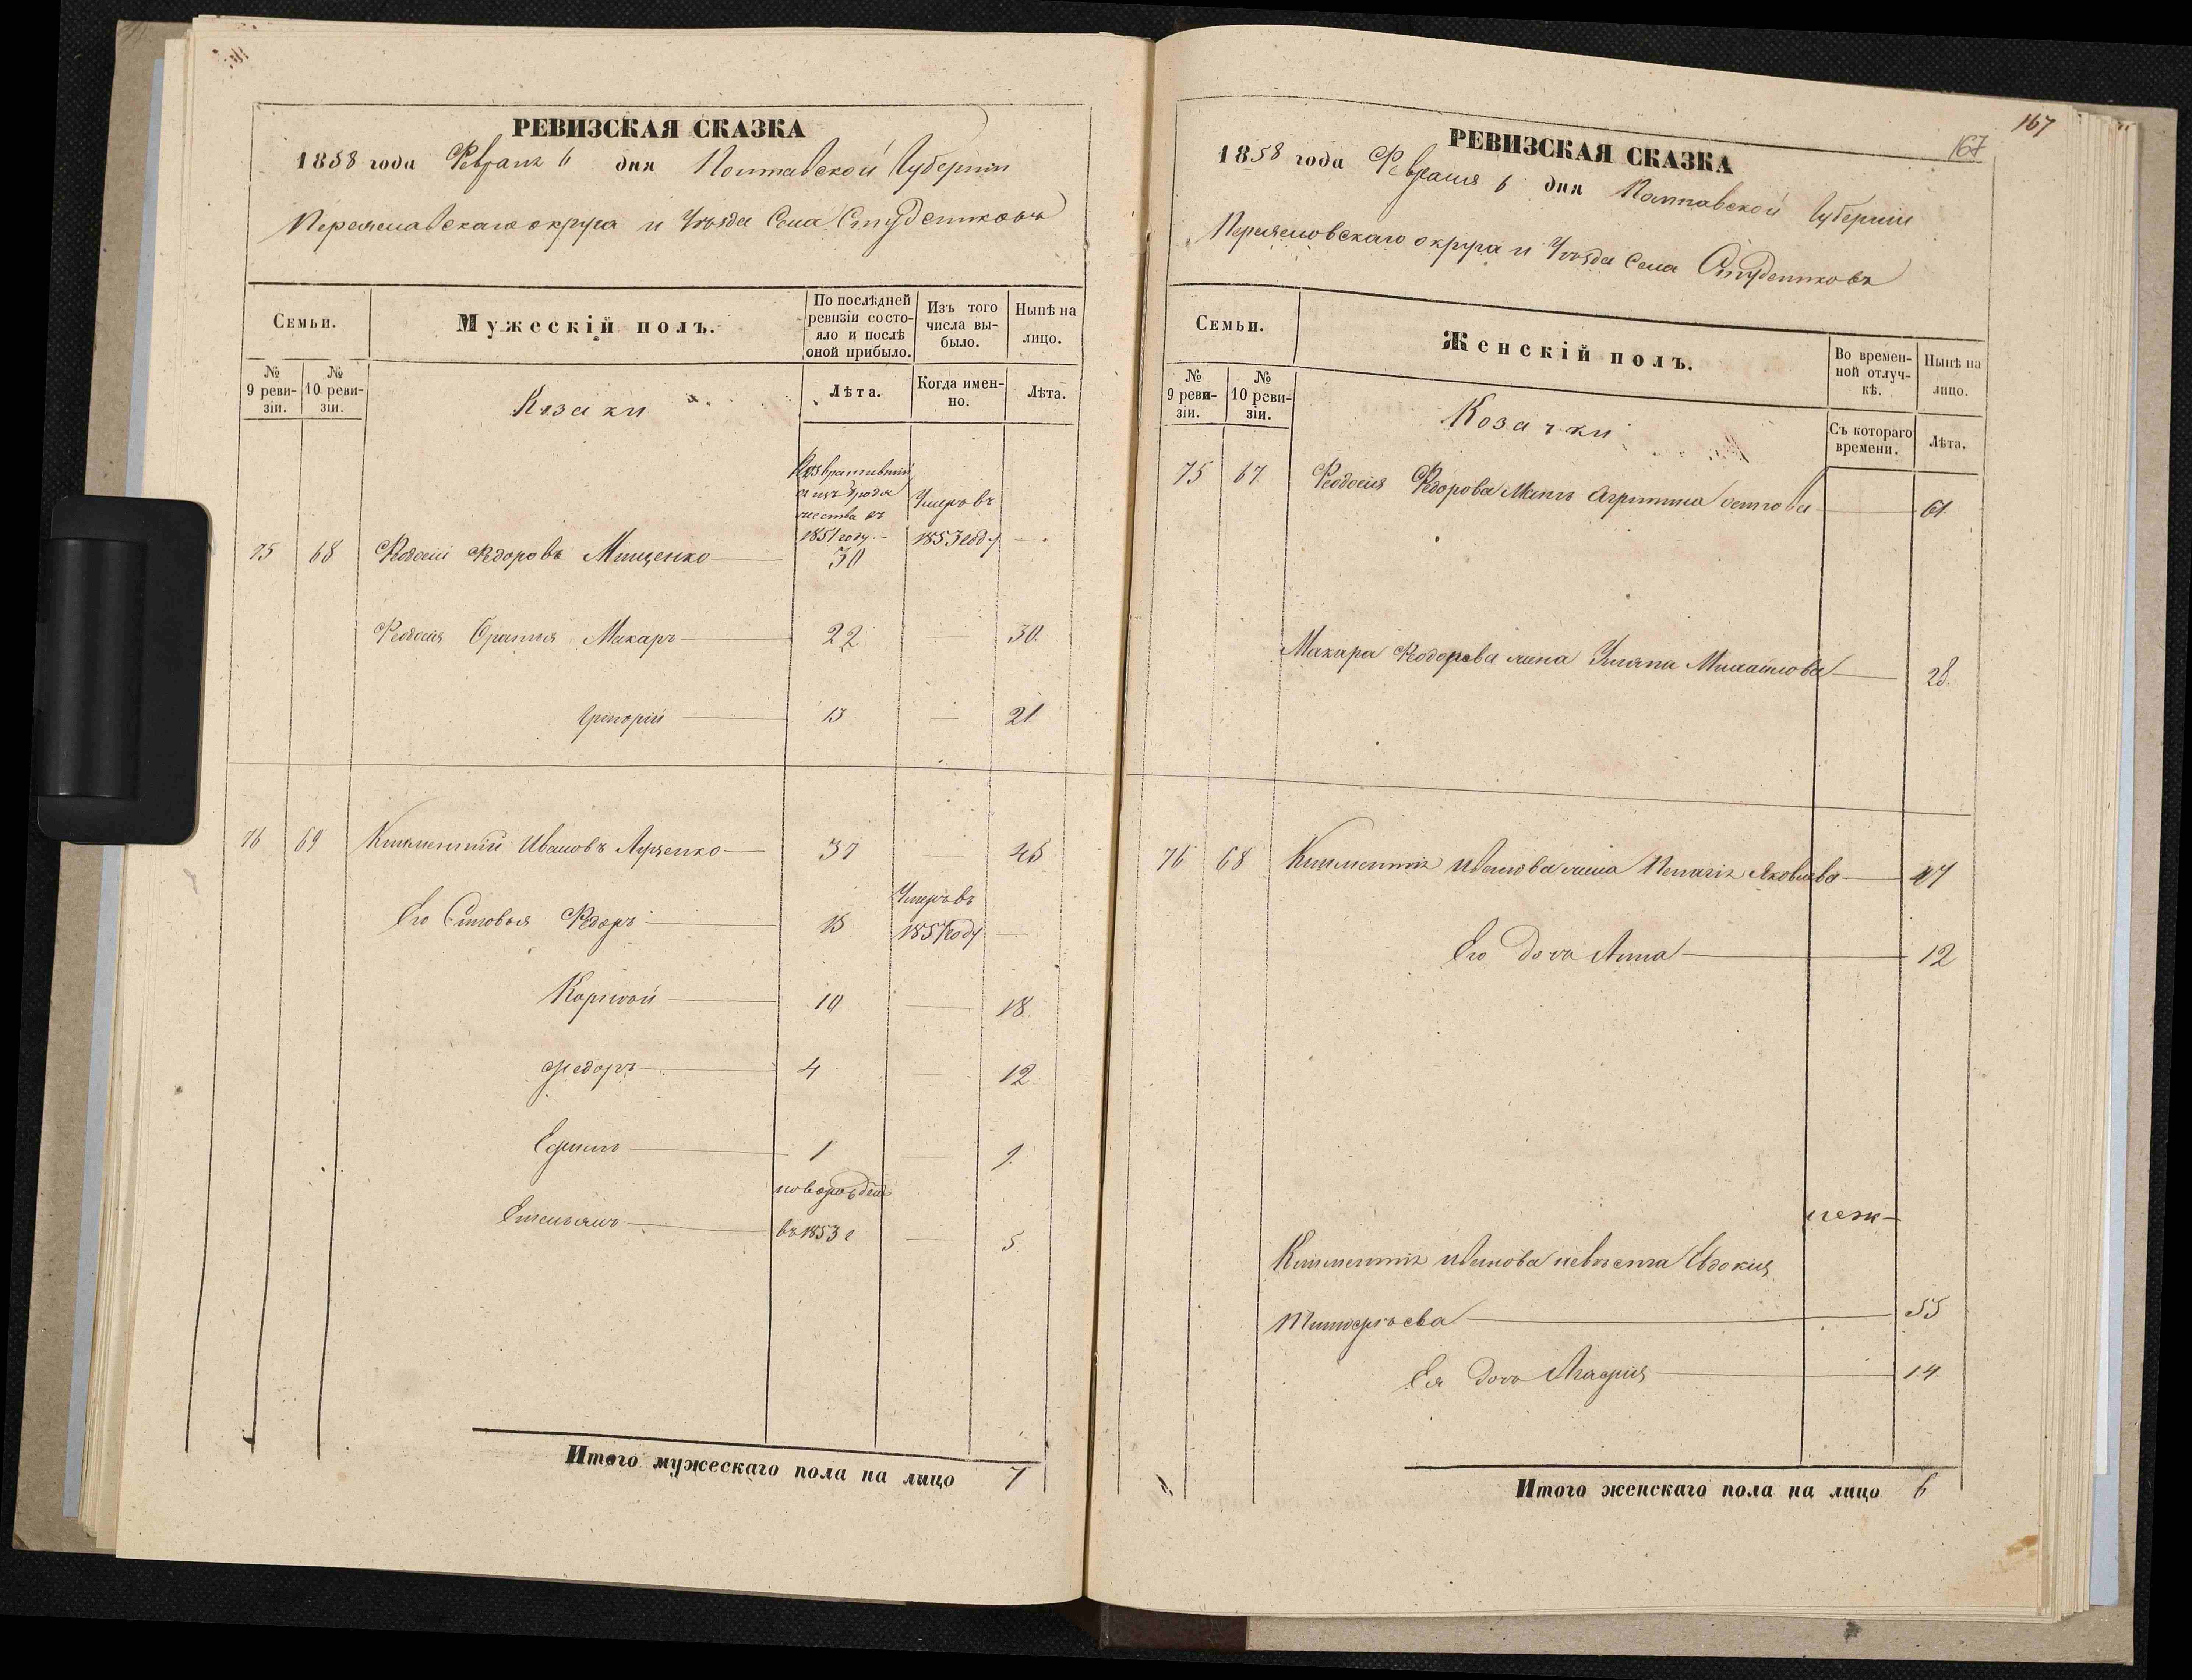 РЕВИЗСКАЯ СКАЗКА
1858 года Февраля 6 дня Полтавской Губернии
Переяславскаго округа и Уѣзда Села Студениковъ
Семьи.
Мужескій полъ.
По послѣдней ревизіи состояло и послѣ оной прибыло.
Изъ того числа выбыло.
Нынѣ на лицо.
№ 9 ревизіи.
№ 10 ревизіи.
Козаки
Лѣта.
Когда именно.
Лѣта.
Возвратившій
ся изъ
1851 году
Умеръ въ
1853 году
75 68 Феодосій Федоровъ Мищенко 30
Феодосія братья Макаръ 22 30.
Григорій 13 21
76 69 Климентій Ивановъ Луценко 37 45
Его Сыновья Федоръ 15 Умеръ въ 1857 году
Корнѣй 10 18.
Федоръ 4 12
Ефимъ 1 9.
новорожден
Емельянъ въ 1853 г 5
Итого мужескаго пола на лицо 7
167
167
РЕВИЗСКАЯ СКАЗКА
1858 года Февраля 6 дня Полтавской Губерніи
Переяславскаго округа и Уѣзда Села Студениковъ
Семьи.
Женскій полъ.
Во временной отлучкѣ.
Нынѣ на лицо.
№ 9 ревизіи.
№ 10 ревизіи.
Козачки
Съ котораго времени.
Лѣта.
75 67. Феодосія Федорова Мать Агрипина 61
Макара Феодорова жена Ульяна Михайлова 28.
76 68 Климентія Иванова жена Пелагія Яковлева 47
Его дочь Анна 12
Климентія Иванова невѣстка Евдокія
Тимофѣева 35
Ея дочь Агафія 14
Итого женскаго пола на лицо 6